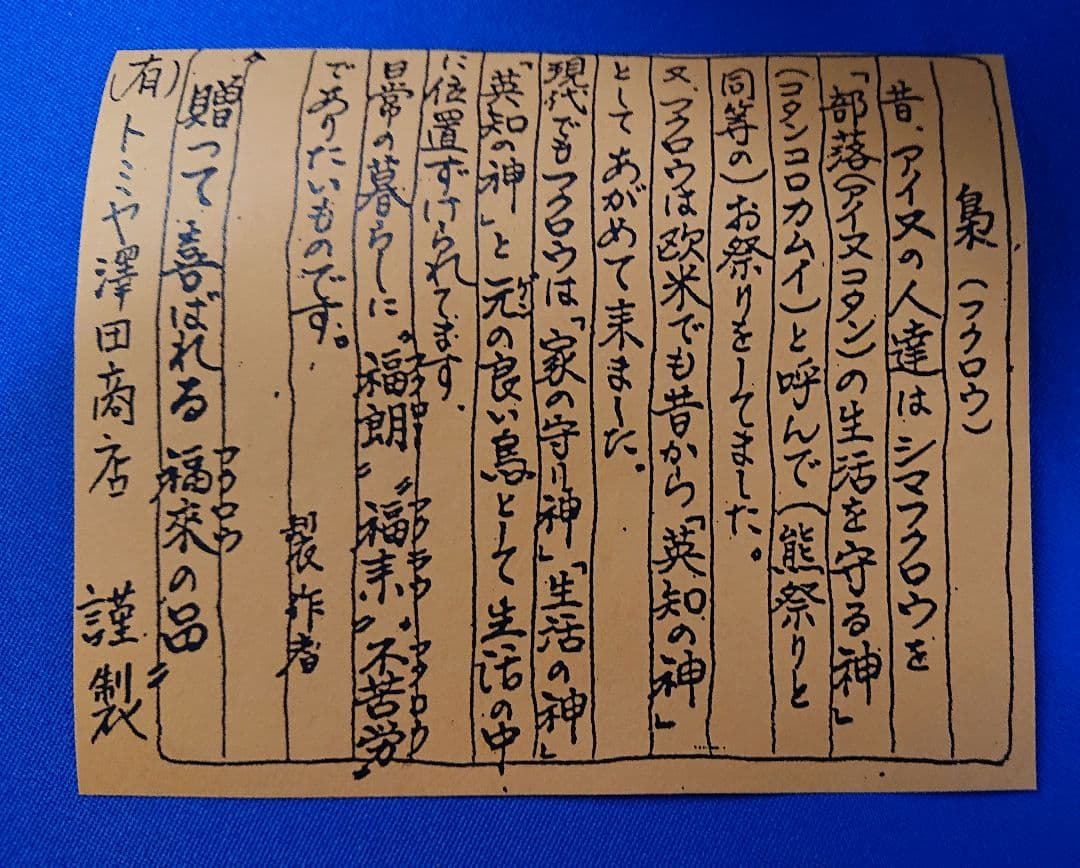 梟(フクロウ)
昔、アイヌの人達はシマフクロウを
「部落(アイヌコタン)の生活を守る神」
(コタンコロカムイ)と呼んで(熊祭りと
同等の)お祭りをしてました。
又、フクロウは欧米でも昔から「英知の神」
としてあがめて来ました。
現代でもフクロウは「家の守り神」「生活の神」
「英知の神」と元の良い鳥として生活の中
ゲン
に位置ずけられてます.
日常の暮らしに〝福朗〟〝福来〟〝不苦労〟
フクロウ フクロウ フクロウ
でありたいものです。
製作者
〝贈って喜ばれる福来の品〟
フクロウ
(有)トミヤ澤田商店 謹製